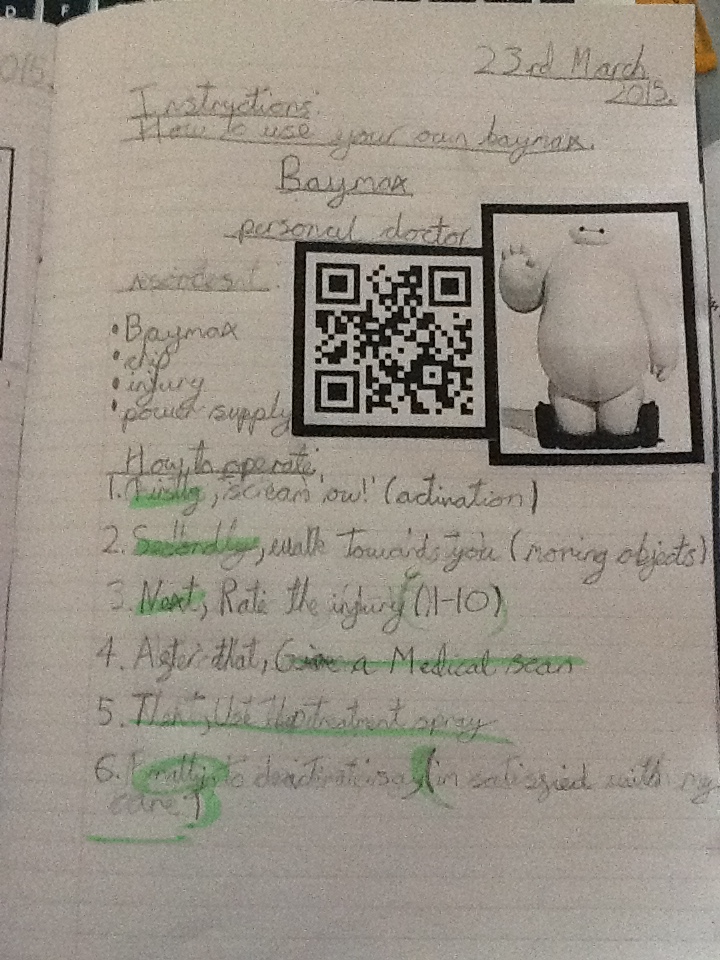 23rd March
2015.
Instructions:
How to use your own baymax.
Baymax
personal doctor
• Baymax
• chip
• injury
• power supply
How to operate
1. Firstly, scream 'ow!' (actination)
2. Secondly, walk towards you (moving objects)
3. Next, Rate the injury (1-10)
4. After that, Give a Medical scan
5. Use treatment spray
6. Finally, to deactinate say (im satisfied with my
care.)
D F
015.